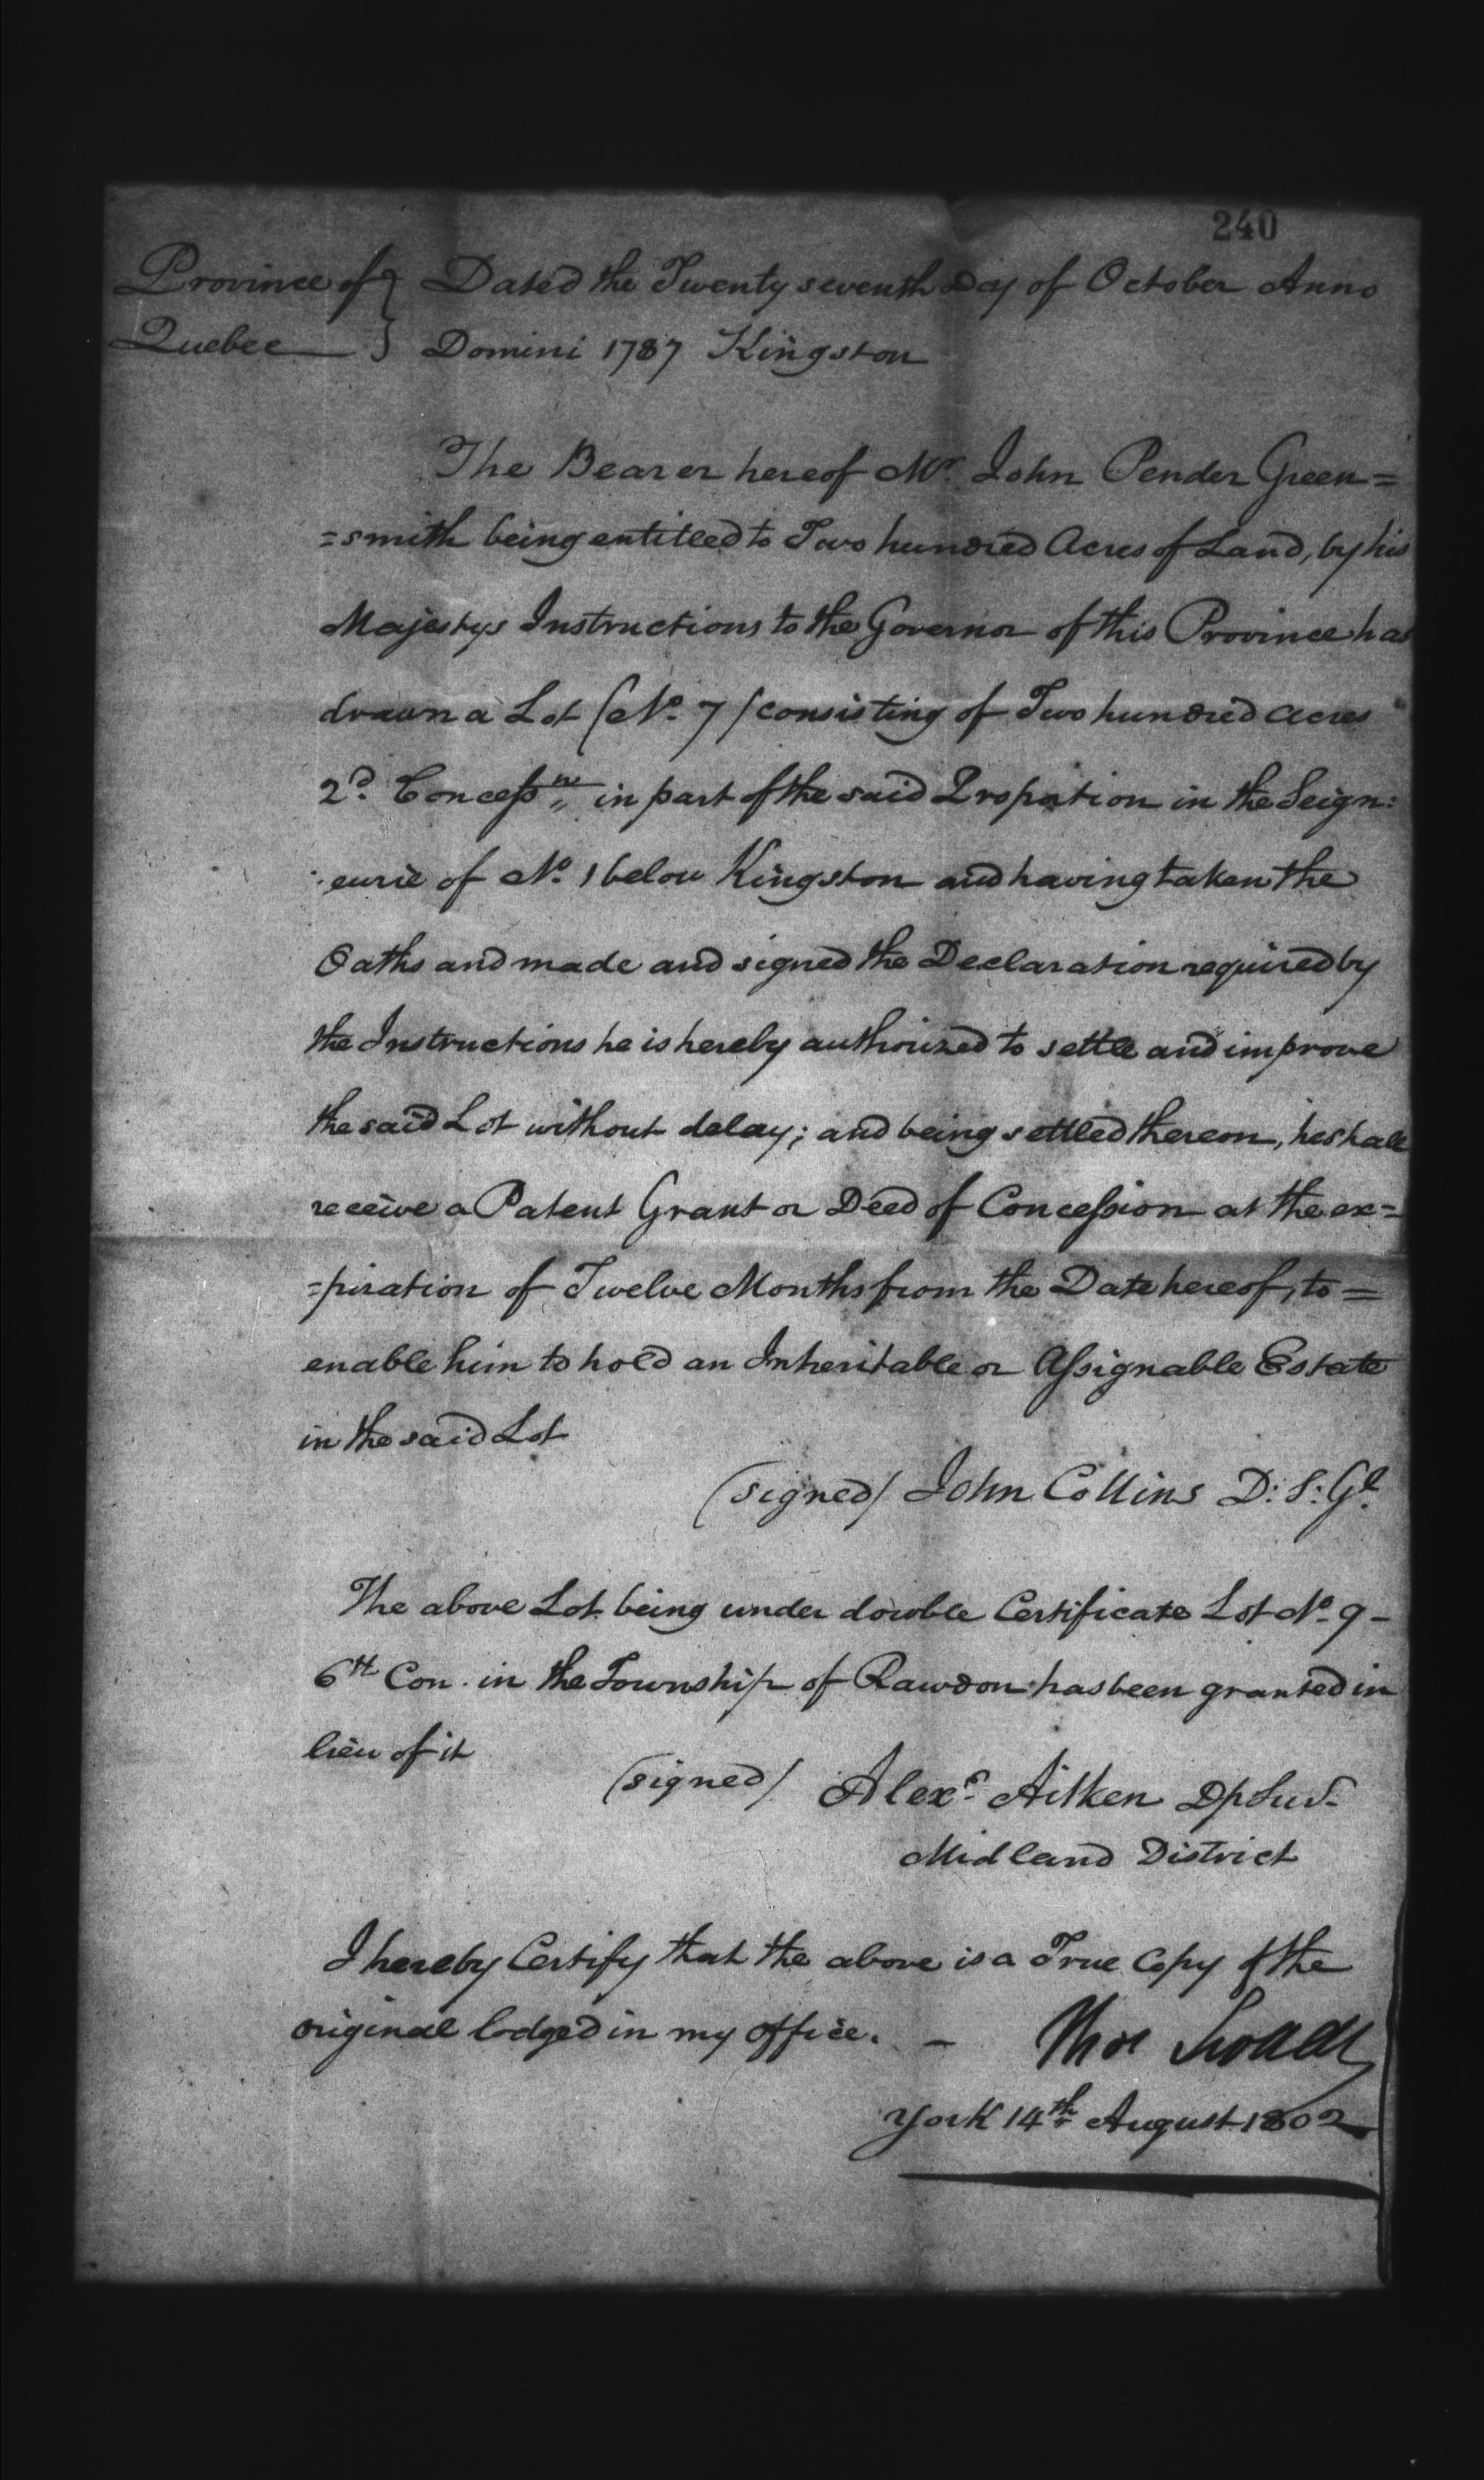 240
Province of } Dated the Twenty seventh Day of October Anno
Quebec } Domini 1787 Kingston
The Bearer hereof Mr. John Pender Green=
=smith being entitled to Two hundred Acres of Land, by his
Majestys Instructions to the Governor of this Province has
drawn a Lot (No. 7) consisting of Two hundred acres
2d. Concessn. in part of the said Proportion in the Seign:
:eurie of No. 1 below Kingston and having taken the
Oaths and made and signed the Declaration required by
the Instructions he is hereby authorized to settle and improve
the said Lot without delay; and being settled thereon, he shall
receive a Patent Grant or Deed of Concession at the ex=
=piration of Twelve Months from the Date hereof, to =
enable him to hold an Inheritable or Assignable Estate
in the said Lot
(signed) John Collins D: S: Gl.
The above Lot being under double Certificate Lot No. 9 -
6th Con. in the Township of Rawdon has been granted in
lieu of it
(signed) Alexr. Aitken Dp Sur.
Midland District
I hereby Certify that the above is a True Copy of the
original lodged in my office. -
York 14th August 1802